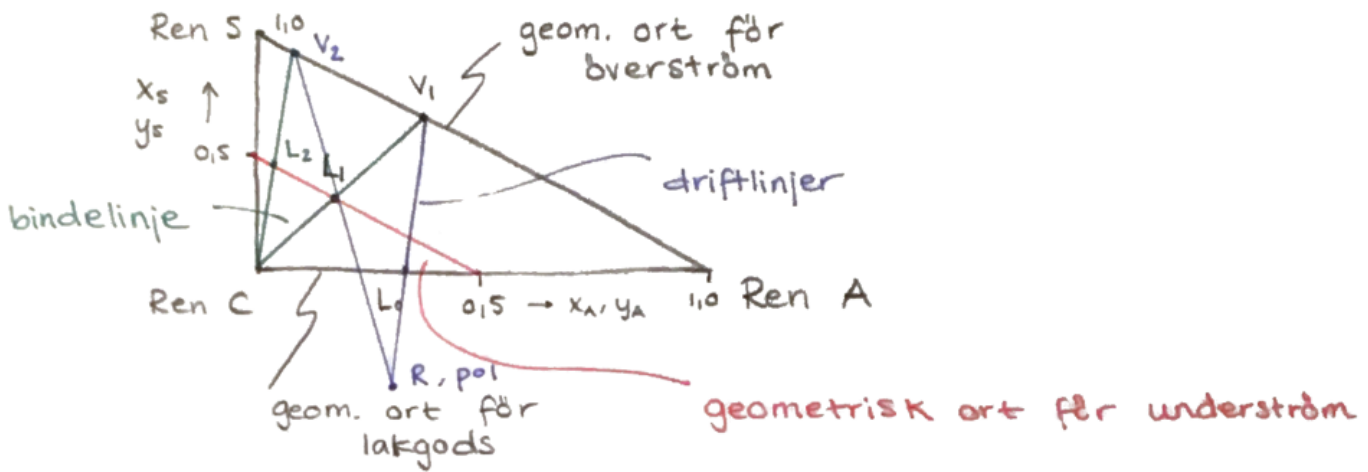 Ren S 1,0
V₂
geom. ort för
överström
V₁
xₛ
yₛ
0,5
L₂
L₁
driftlinjer
bindelinje
Ren C
L₀
0,5 → x_A, y_A
1,0 Ren A
R, pol
geom. ort för
lakgods
geometrisk ort för underström